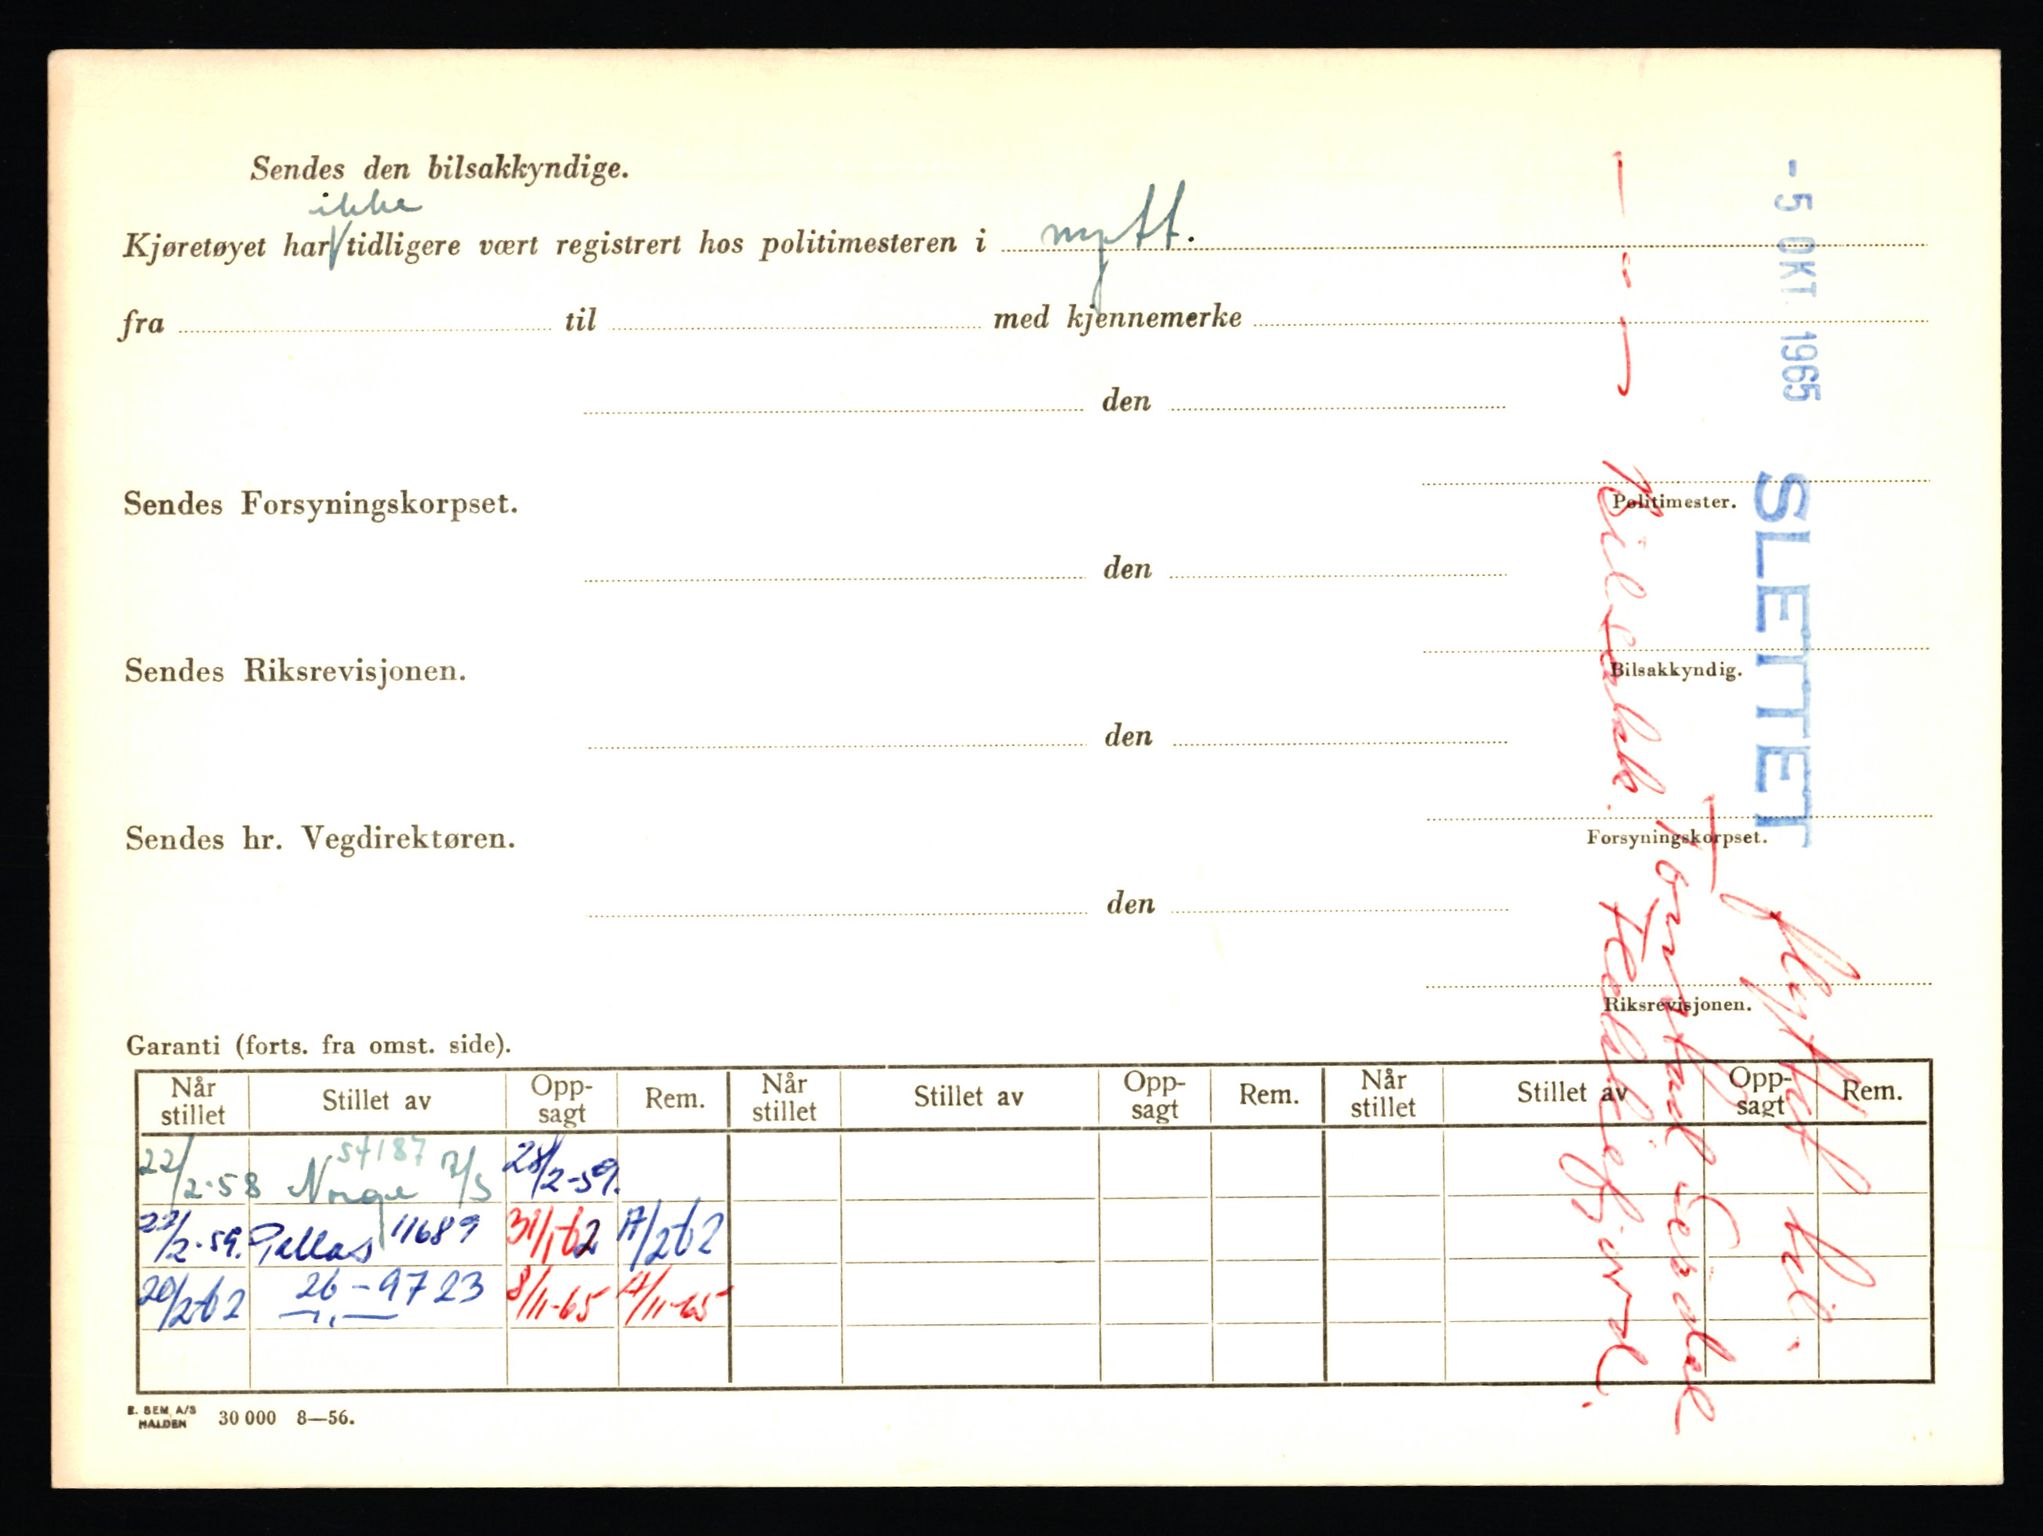 Sendes den bilsakkyndige.
ikke
Kjøretøyet har √ tidligere vært registrert hos politimesteren i nytt.
fra til med kjennemerke
den
Politimester.
Sendes Forsyningskorpset.
den
Bilsakkyndig.
Sendes Riksrevisjonen.
den
Forsyningskorpset.
Sendes hr. Vegdirektøren.
den
Riksrevisjonen.
- 5 OKT. 1965 SLETTET
flyttet til
Bilsakk.
Garanti (forts. fra omst. side).
Når stillet Stillet av Opp-sagt Rem. Når stillet Stillet av Opp-sagt Rem. Når stillet Stillet av Opp-sagt Rem.
22/2-58 Norge 54187 28/2-59.
22/2-59. Pallas 11689 31/1-62 17/2-62
20/2-62 26-9723 8/11-65 4/11-65
E. SEM A/S HALDEN 30 000 8—56.